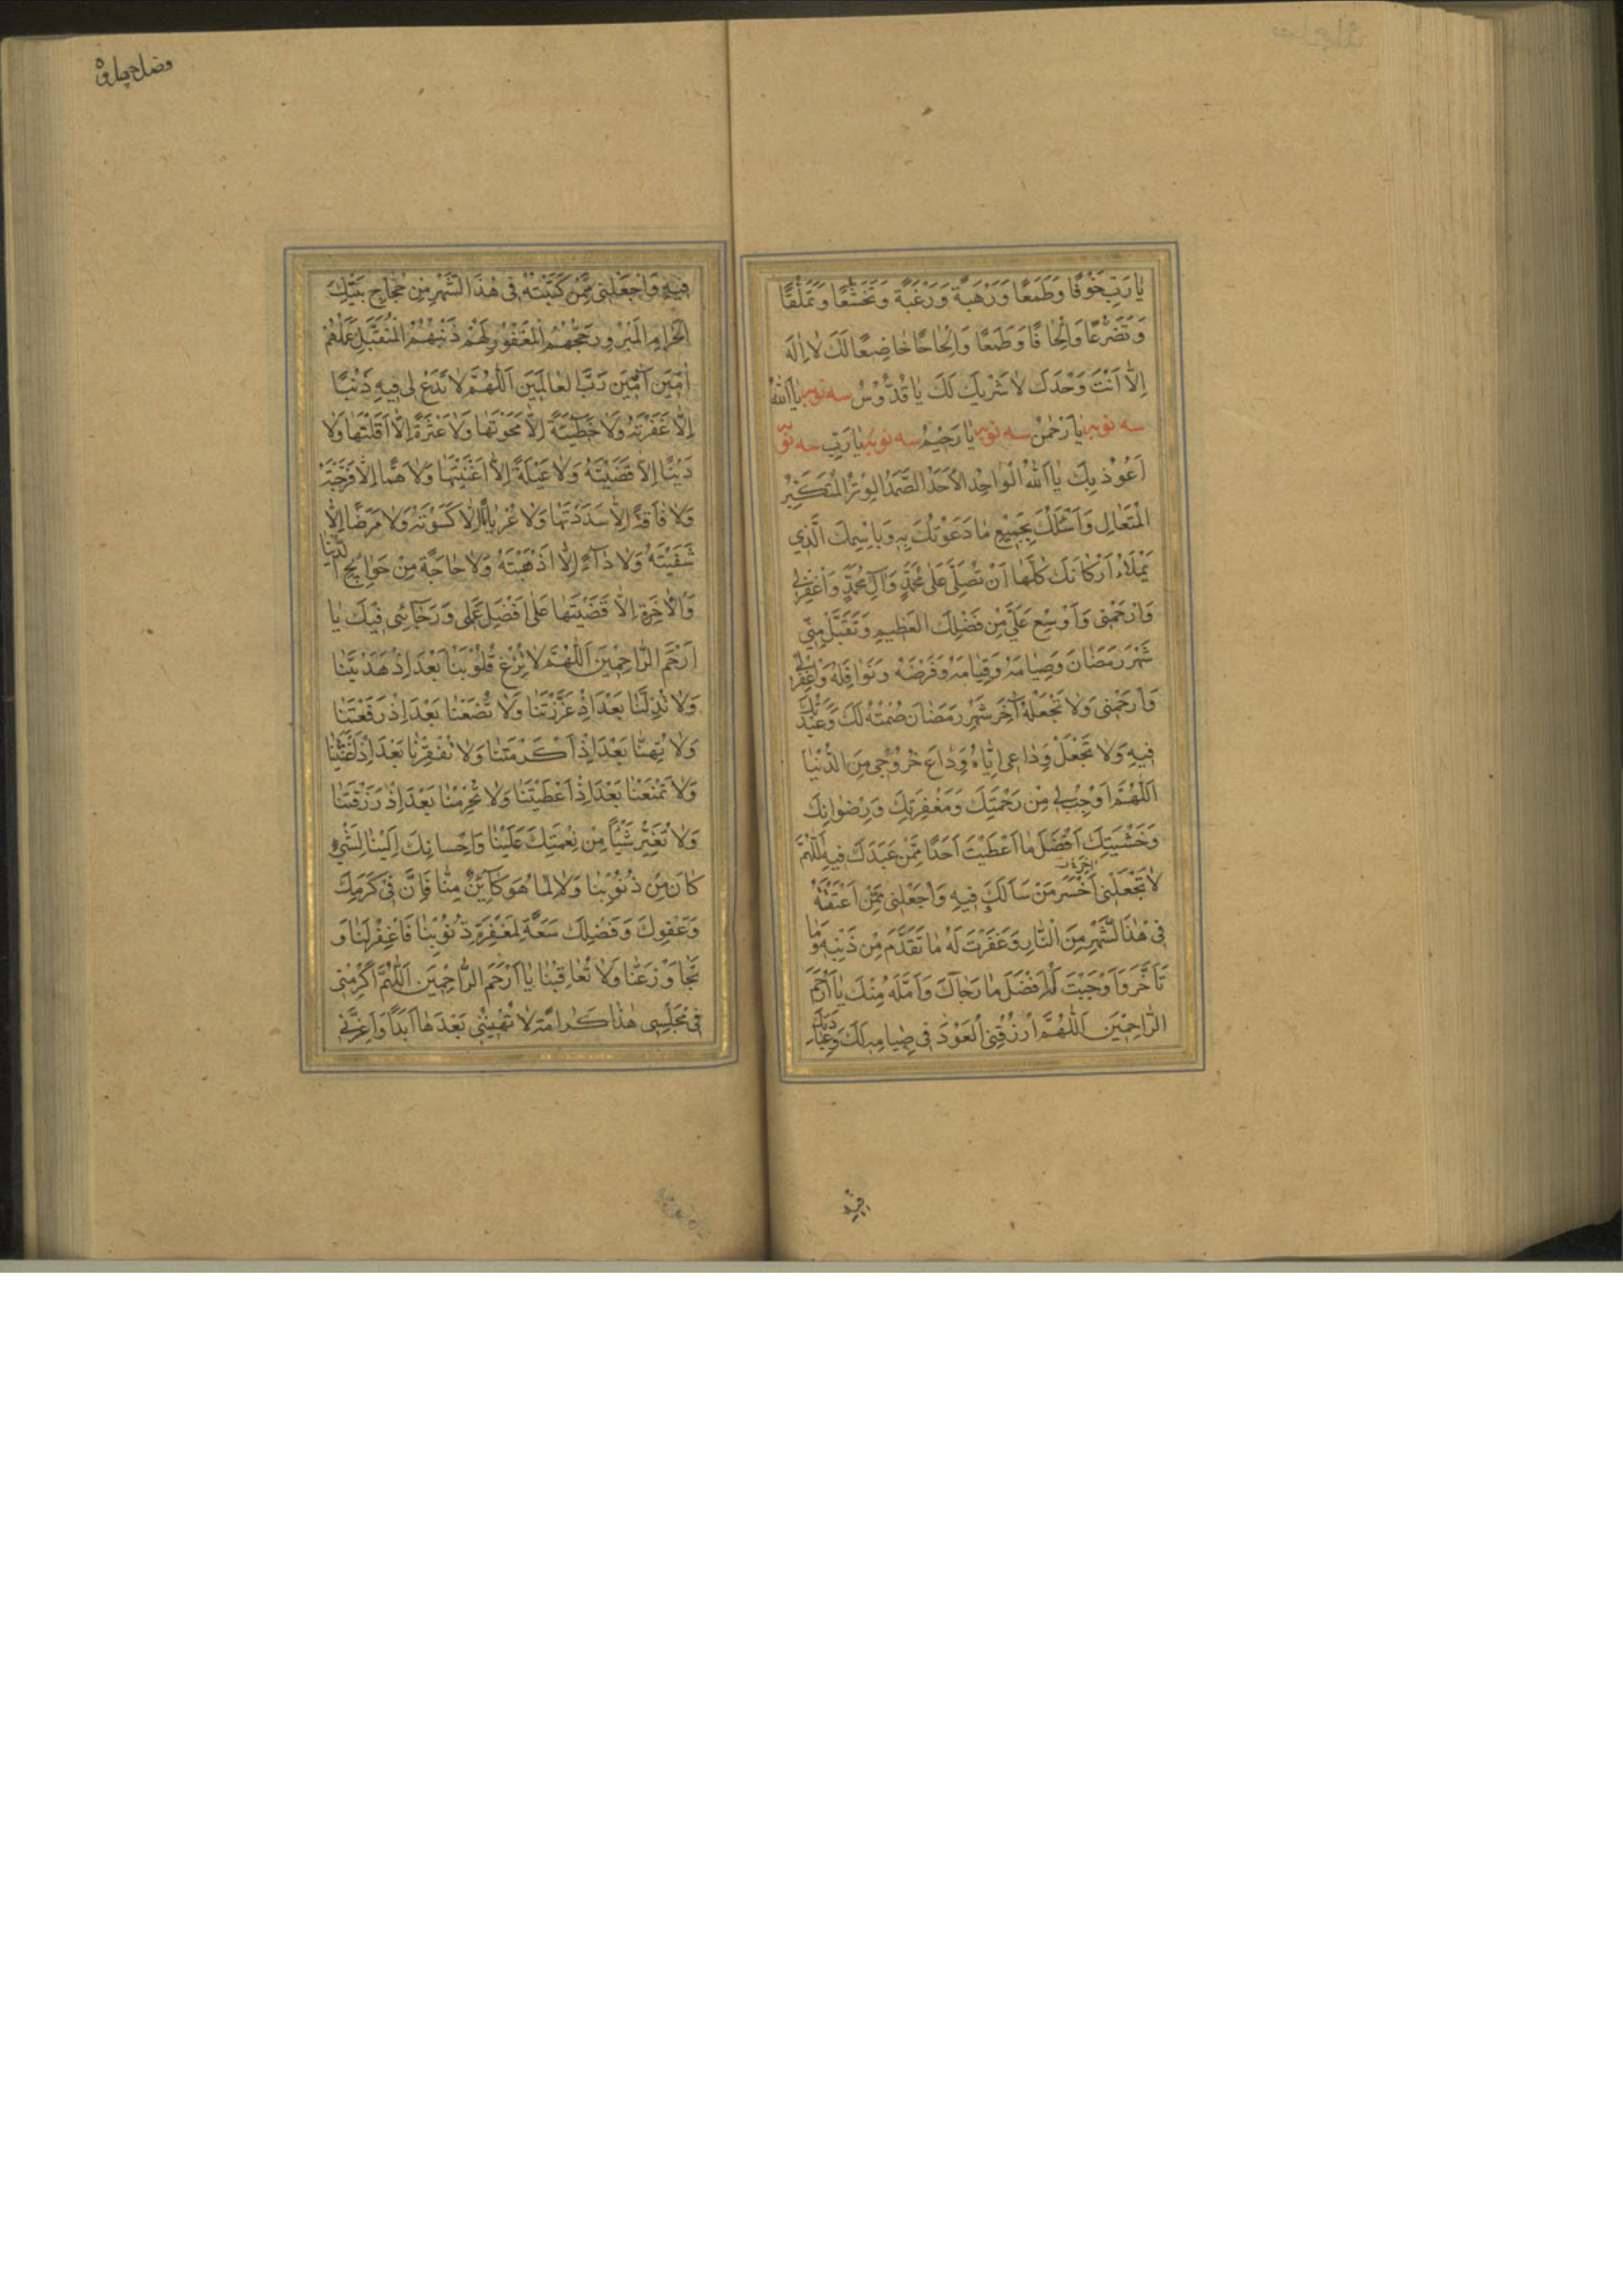 يٰا رَبِّ خَوْفًا وَطَمَعًا وَرَهْبَةً وَرَغْبَةً وَتَخَشُّعًا وَتَمَلُّقًا
وَتَضَرُّعًا وَاِلْحٰافًا وَطَمَعًا وَاِلْحٰاحًا خٰاضِعًا لَكَ لٰا اِلٰهَ
اِلّٰا اَنْتَ وَحْدَكَ لٰا شَرْيكَ لَكَ يٰا قُدُّوْسُ سه نوبه يٰا اَللّٰهُ
سه نوبه يٰا رَحْمٰنُ سه نوبه يٰا رَحْيمُ سه نوبه يٰا رَبِّ سه نوبه
اَعُوْذُ بِكَ يٰا اَللّٰهُ الْوٰاحِدُ الْاَحَدُ الصَّمَدُ الْوِتْرُ الْمُتَكَبِّرُ
الْمُتَعٰالِ وَاَسْئَلُكَ بِجَمْيعِ مٰا دَعَوْتُكَ بِهِ وَبِاسْمِكَ الَّذي
يَمْلَاءُ اَرْكٰانَكَ كُلَّهٰا اَنْ تُصَلِّىَ عَلٰى مُحَمَّدٍ وَآلِ مُحَمَّدٍ وَاغْفِرْ لى
وَارْحَمْنى وَاَوْسِعْ عَلَىَّ مِنْ فَضْلِكَ الْعَظْيمِ وَتَقَبَّلْ مِنّى
شَهْرَ رَمَضٰانَ وَصِيٰامَهُ وَقِيٰامَهُ وَفَرْضَهُ وَنَوٰافِلَهُ وَاغْفِرْ لى
وَارْحَمْنى وَلٰا تَجْعَلْهُ آخِرَ شَهْرِ رَمَضٰانَ صُمْتُهُ لَكَ وَعَبَدْتُكَ
فيهِ وَلٰا تَجْعَلْ وَدٰاعى اِيّٰاهُ وَدٰاعَ خُرُوْجى مِنَ الدُّنْيٰا
اَللّٰهُمَّ اَوْجِبْ لى مِنْ رَحْمَتِكَ وَمَغْفِرَتِكَ وَرِضْوٰانِكَ
وَخَشْيَتِكَ اَفْضَلَ مٰا اَعْطَيْتَ اَحَدًا مِمَّنْ عَبَدَكَ فيهِ اَللّٰهُمَّ
لٰا تَجْعَلْنى اَخْسَرَ مَنْ سَاَلَكَ فيهِ وَاجْعَلْنى مِمَّنْ اَعْتَقْتَهُ
فى هٰذَا الشَّهْرِ مِنَ النّٰارِ وَغَفَرْتَ لَهُ مٰا تَقَدَّمَ مِنْ ذَنْبِهِ وَمٰا
تَاَخَّرَ وَاَوْجَبْتَ لَهُ اَفْضَلَ مٰا رَجٰاكَ وَاَمَّلَهُ مِنْكَ يٰا اَرْحَمَ
الرّٰاحِمْينَ اَللّٰهُمَّ ارْزُقْنِى الْعَوْدَ فى صِيٰامِهِ لَكَ وَعِبٰادَتِكَ
فيه
فيهِ وَاجْعَلْنى مِمَّنْ كَتَبْتَهُ فى هٰذَا الشَّهْرِ مِنْ حُجّٰاجِ بَيْتِكَ
الْحَرٰامِ الْمَبْرُوْرِ حَجُّهُمُ الْمَغْفُوْرِ لَهُمْ ذَنْبُهُمُ الْمُتَقَبَّلِ عَمَلُهُمْ
اٰمْينَ آمْينَ رَبَّ الْعٰالَمْينَ اَللّٰهُمَّ لٰا تَدَعْ لى فيهِ ذَنْبًا
اِلّٰا غَفَرْتَهُ وَلٰا خَطْيئَةً اِلّٰا مَحَوْتَهٰا وَلٰا عَثْرَةً اِلّٰا اَقَلْتَهٰا وَلٰا
دَيْنًا اِلّٰا قَضَيْتَهُ وَلٰا عَيْلَةً اِلّٰا اَغْنَيْتَهٰا وَلٰا هَمًّا اِلّٰا فَرَّجْتَهُ
وَلٰا فٰاقَةً اِلّٰا سَدَدْتَهٰا وَلٰا عُرْيٰانًا اِلّٰا كَسَوْتَهُ وَلٰا مَرَضًا اِلّٰا
شَفَيْتَهُ وَلٰا دٰاءً اِلّٰا اَذْهَبْتَهُ وَلٰا حٰاجَةً مِنْ حَوٰائِجِ الدُّنْيٰا
وَالْاٰخِرَةِ اِلّٰا قَضَيْتَهٰا عَلٰى اَفْضَلِ اَمَلى وَرَجٰائى فيكَ يٰا
اَرْحَمَ الرّٰاحِمْينَ اَللّٰهُمَّ لٰا تُزِغْ قُلُوْبَنٰا بَعْدَ اِذْ هَدَيْتَنٰا
وَلٰا تُذِلَّنٰا بَعْدَ اِذْ عَزَّزْتَنٰا وَلٰا تَضَعْنٰا بَعْدَ اِذْ رَفَعْتَنٰا
وَلٰا تُهِنّٰا بَعْدَ اِذْ اَكْرَمْتَنٰا وَلٰا تُفْقِرْنٰا بَعْدَ اِذْ اَغْنَيْتَنٰا
وَلٰا تَمْنَعْنٰا بَعْدَ اِذْ اَعْطَيْتَنٰا وَلٰا تَحْرِمْنٰا بَعْدَ اِذْ رَزَقْتَنٰا
وَلٰا تُغَيِّرْ شَيْئًا مِنْ نِعْمَتِكَ عَلَيْنٰا وَاِحْسٰانِكَ اِلَيْنٰا لِشَىْءٍ
كٰانَ مِنْ ذُنُوْبِنٰا وَلٰا لِمٰا هُوَ كٰائِنٌ مِنّٰا فَاِنَّ فى كَرَمِكَ
وَعَفْوِكَ وَفَضْلِكَ سَعَةً لِمَغْفِرَةِ ذُنُوْبِنٰا فَاغْفِرْ لَنٰا وَ
تَجٰاوَزْ عَنّٰا وَلٰا تُعٰاقِبْنٰا يٰا اَرْحَمَ الرّٰاحِمْينَ اَللّٰهُمَّ اَكْرِمْنى
فى مَجْلِسى هٰذٰا كَرٰامَةً لٰا تُهْينُنى بَعْدَهٰا اَبَدًا وَاَعِزَّنى